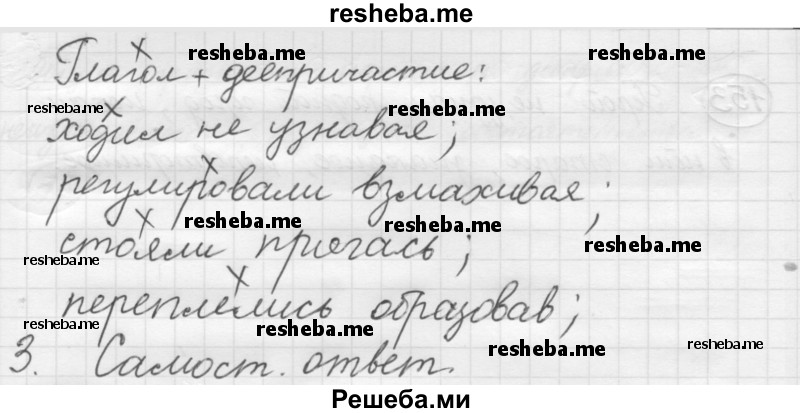 resheba.me
Глагол + деепричастие:
ходил не узнавая;
регулировали взмахивая;
стояли прячась;
переплелись образовав;
3. Самост. ответ.
resheba.me
resheba.me
resheba.me
resheba.me
resheba.me
resheba.me
resheba.me
resheba.me
resheba.me
resheba.me
Решеба.ми